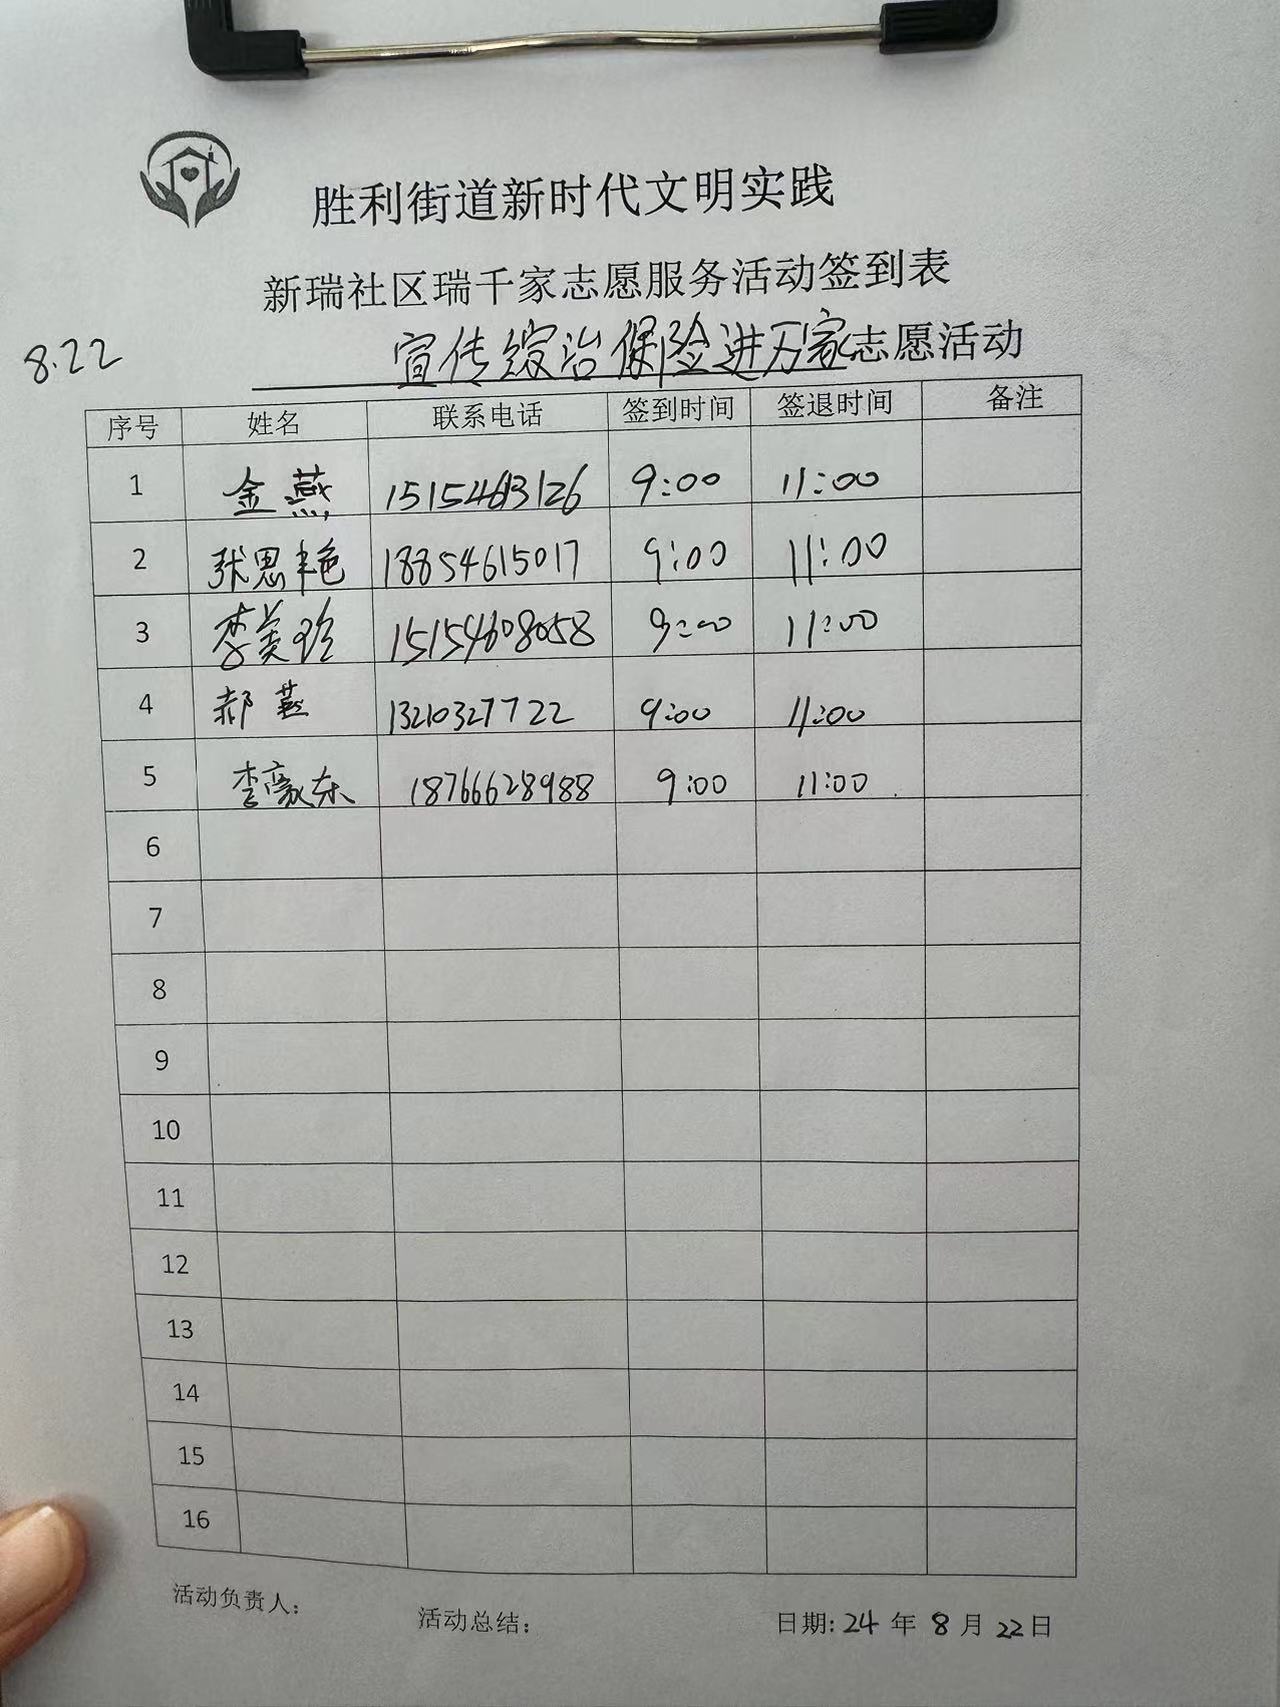 胜利街道新时代文明实践
新瑞社区瑞千家志愿服务活动签到表
8.22
宣传综治保险进万家志愿活动
序号 姓名 联系电话 签到时间 签退时间 备注
1 金燕 15154613126 9:00 11:00
2 张思艳 18854615017 9:00 11:00
3 李美玲 15154608058 9:00 11:00
4 郝燕 13210327722 9:00 11:00
5 李豪东 18766628988 9:00 11:00
6
7
8
9
10
11
12
13
14
15
16
活动负责人: 活动总结: 日期: 24 年 8 月 22 日